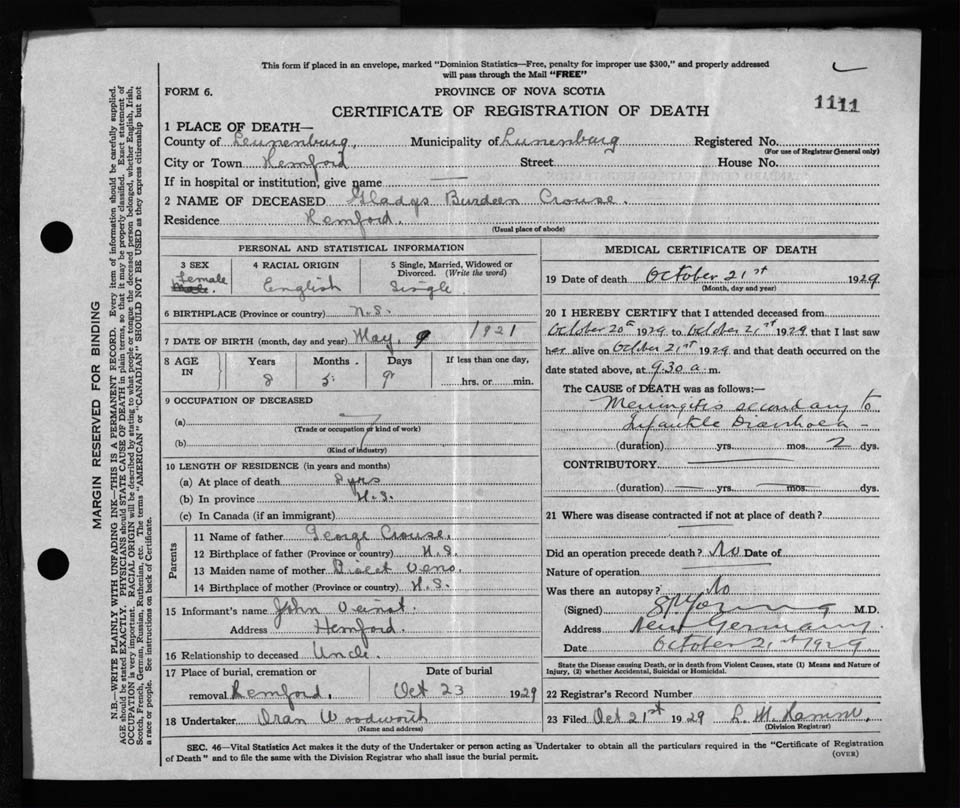 This form if placed in an envelope, marked "Dominion Statistics—Free, penalty for improper use $300," and properly addressed
will pass through the Mail "FREE"
FORM 6.
PROVINCE OF NOVA SCOTIA
CERTIFICATE OF REGISTRATION OF DEATH
1111
1 PLACE OF DEATH—
County of Lunenburg, Municipality of Lunenburg Registered No.
(For use of Registrar General only)
City or Town Hemford Street House No.
If in hospital or institution, give name —
2 NAME OF DECEASED Gladys Burdeen Crouse.
Residence Hemford.
(Usual place of abode)
PERSONAL AND STATISTICAL INFORMATION
3 SEX 4 RACIAL ORIGIN 5 Single, Married, Widowed or
Divorced. (Write the word)
Female English Single
6 BIRTHPLACE (Province or country) N.S.
7 DATE OF BIRTH (month, day and year) May 9 1921
8 AGE IN Years Months Days If less than one day,
8 5 9 hrs. or min.
9 OCCUPATION OF DECEASED
(a)
(Trade or occupation of kind of work)
(b)
(Kind of industry)
10 LENGTH OF RESIDENCE (in years and months)
(a) At place of death 8 yrs
(b) In province N.S.
(c) In Canada (if an immigrant)
Parents
11 Name of father George Crouse.
12 Birthplace of father (Province or country) N.S.
13 Maiden name of mother
14 Birthplace of mother (Province or country) N.S.
15 Informant's name John Veinot.
Address Hemford.
16 Relationship to deceased Uncle.
17 Place of burial, cremation or Date of burial
removal Hemford. Oct 23 1929
18 Undertaker Oran Woodworth
(Name and address)
MEDICAL CERTIFICATE OF DEATH
19 Date of death October 21st 1929
(Month, day and year)
20 I HEREBY CERTIFY that I attended deceased from
October 20th 1929 to October 21st 1929 that I last saw
her alive on October 21st 1929 and that death occurred on the
date stated above, at 9.30 a. m.
The CAUSE of DEATH was as follows:—
Meningitis secondary to
Infantile Diarrhoea —
(duration) yrs. mos. 2 dys.
CONTRIBUTORY —
(duration) — yrs. — mos. — dys.
21 Where was disease contracted if not at place of death?
—
Did an operation precede death? No Date of
Nature of operation
Was there an autopsy? No
(Signed) Young M.D.
Address New Germany.
Date October 21st 1929
State the Disease causing Death, or in death from Violent Causes, state (1) Means and Nature of
Injury, (2) whether Accidental, Suicidal or Homicidal.
22 Registrar's Record Number
23 Filed Oct 21st 1929 L. M.
(Division Registrar)
SEC. 46—Vital Statistics Act makes it the duty of the Undertaker or person acting as Undertaker to obtain all the particulars required in the "Certificate of Registration
of Death" and to file the same with the Division Registrar who shall issue the burial permit. (OVER)
MARGIN RESERVED FOR BINDING
N.B.—WRITE PLAINLY WITH UNFADING INK—THIS IS A PERMANENT RECORD. Every item of information should be carefully supplied.
AGE should be stated EXACTLY. PHYSICIANS should STATE CAUSE OF DEATH in plain terms, so that it may be properly classified. Exact statement of
OCCUPATION is very important. RACIAL ORIGIN will be described by stating to what people or tongue the deceased person belonged, whether English, Irish,
Scotch, French, German, Russian, Ruthenian, etc. The terms "AMERICAN" or "CANADIAN" SHOULD NOT BE USED as they express citizenship but not
a race or people. See instructions on back of Certificate.